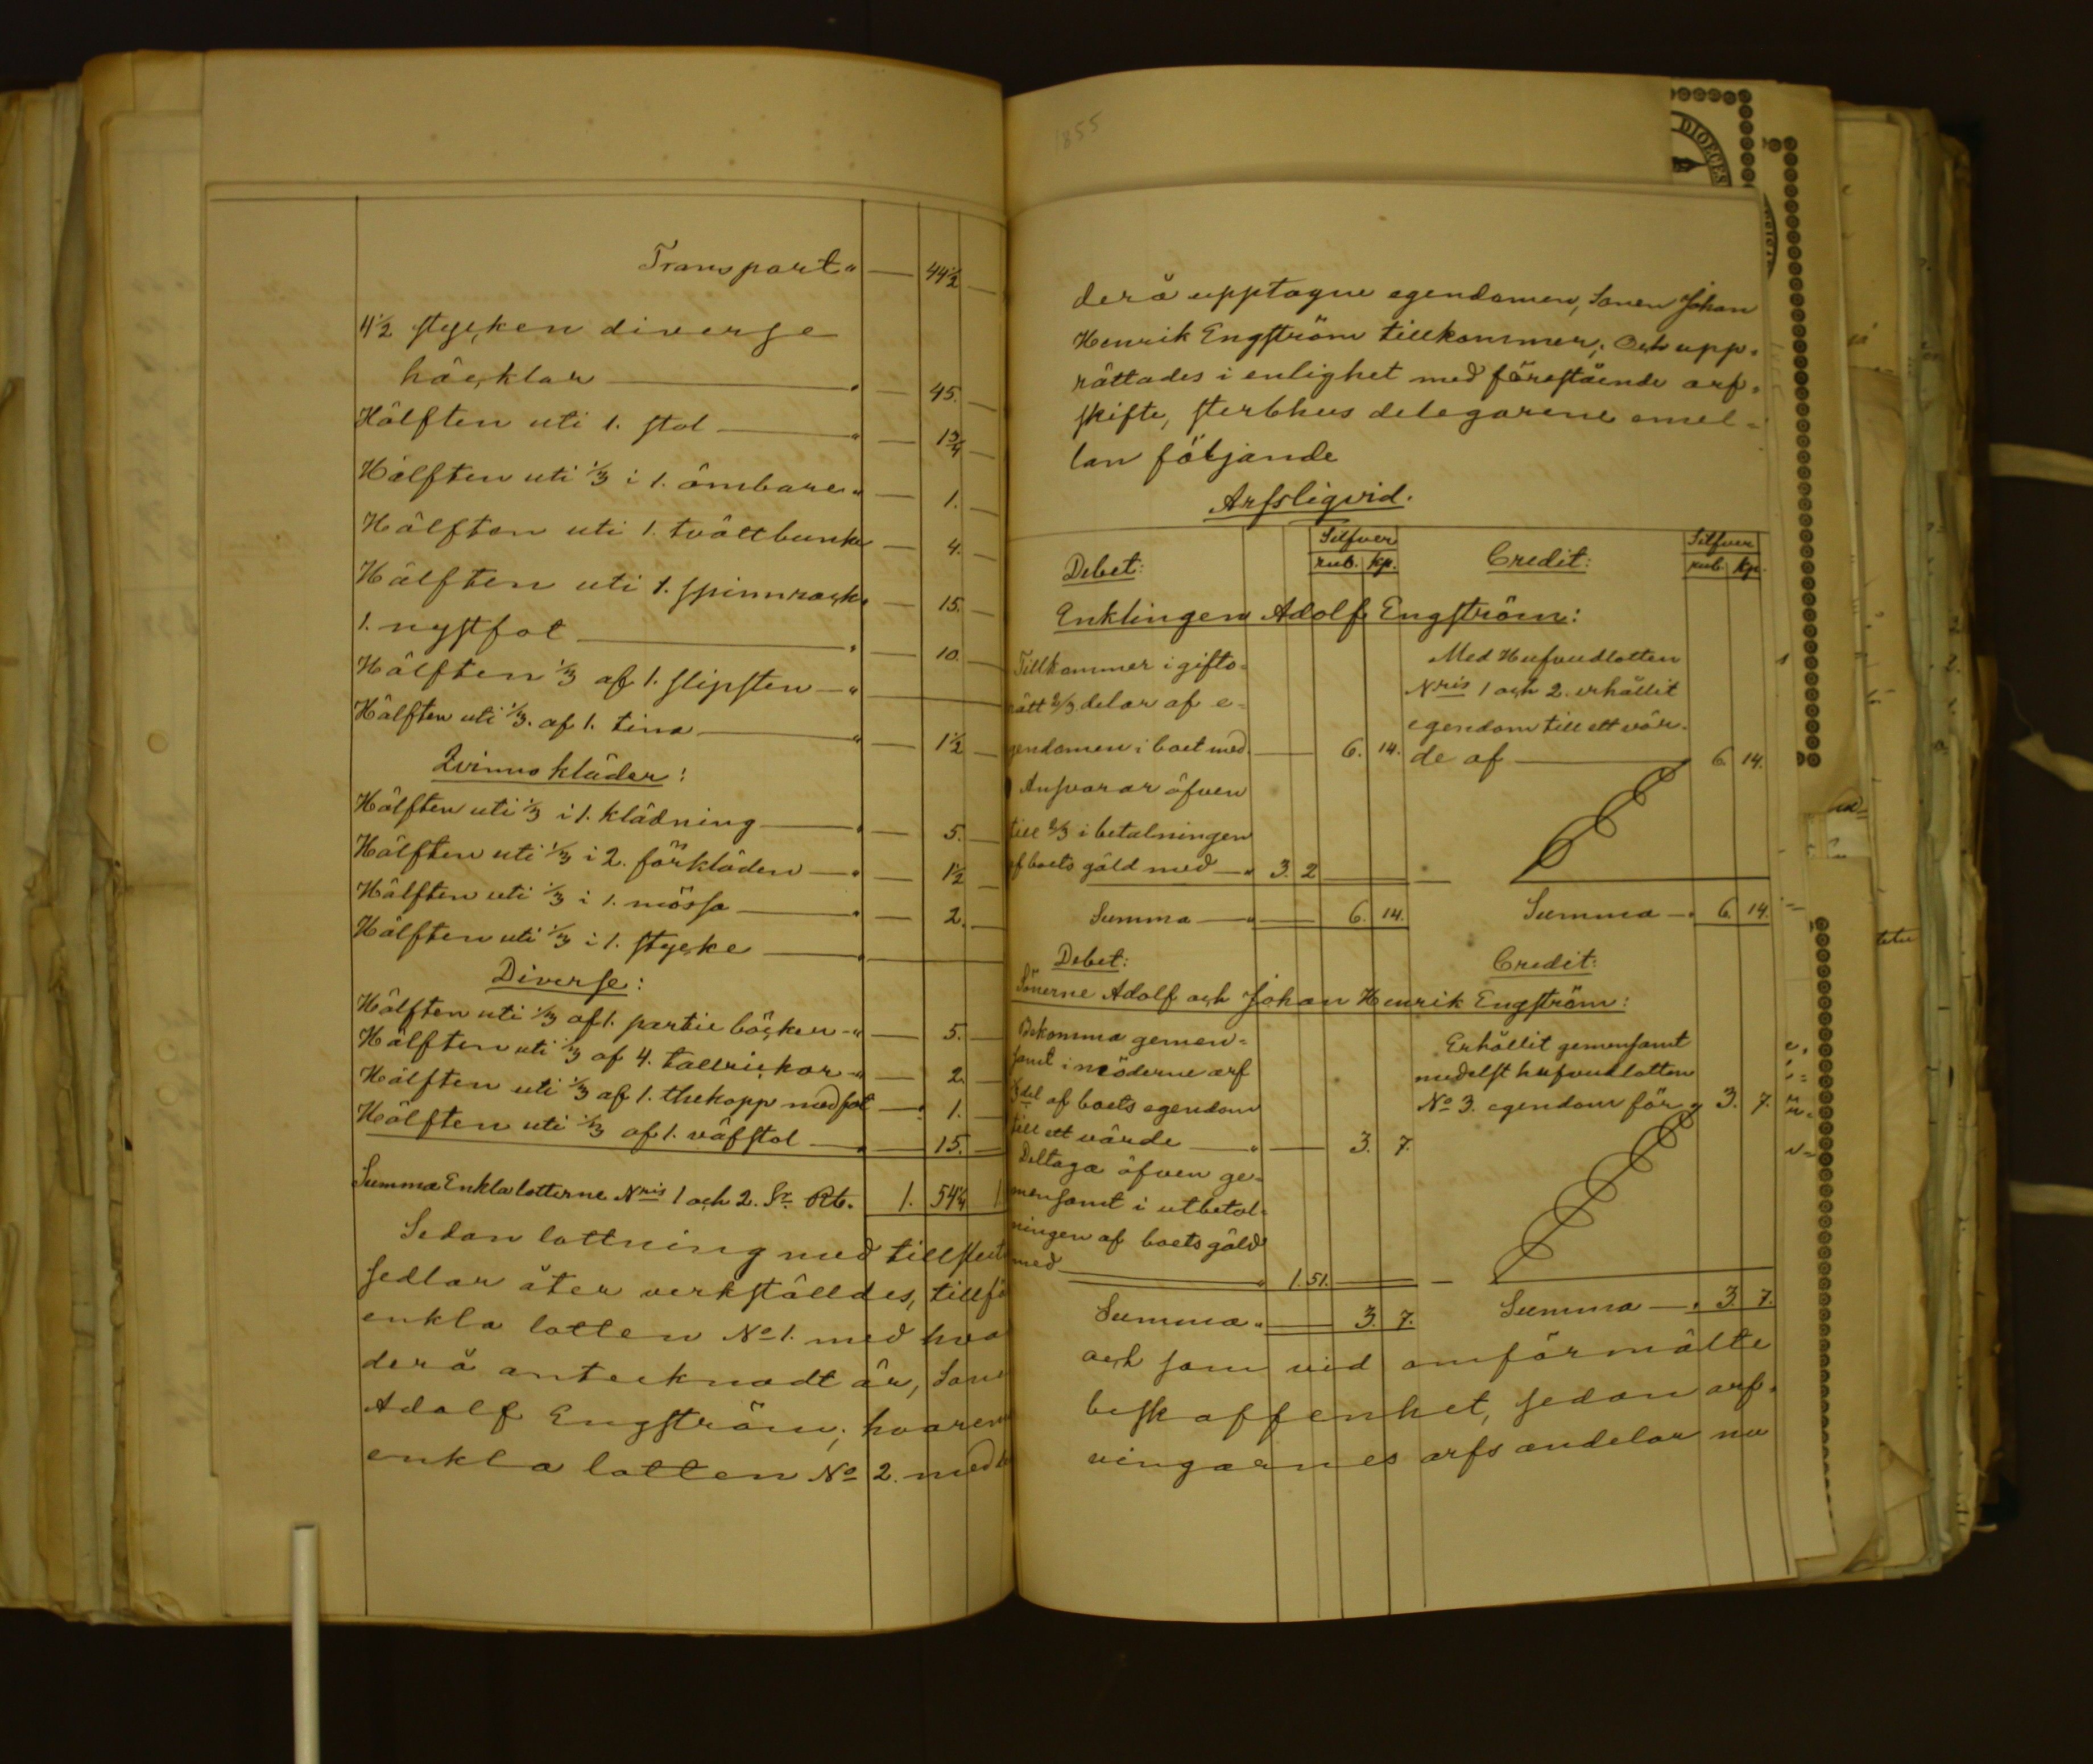 Transport " — 44 1/2 —
4 1/2 stycken diverse
häcklar — " — 45. —
Hälften uti 1. stol — " — 1 3/4 —
Hälften uti 1/3 i 1. ämbare " — 1. —
Hälften uti 1. tvättbunke — 4. —
Hälften uti 1. spinnrock " — 15. —
1. nystfot — " — 10. —
Hälften 1/3 af 1. slipsten — "
Hälften uti 1/3. af 1. tina — " — 1 1/2 —
Qvinno kläder:
Hälften uti 1/3 i 1. klädning — " — 5. —
Hälften uti 1/3 i 2. förkläden — " — 1 1/2 —
Hälften uti 1/3 i 1. mössa — " — 2. —
Hälften uti 1/3 i 1. stycke — "
Diverse:
Hälften uti 1/3 af 1. partie böcker — " — 5. —
Hälften uti 1/3 af 4. tallrickor — " — 2. —
Hälften uti 1/3 af 1. thekopp med fat — 1. —
Hälften uti 1/3 af 1. väfstol — " — 15. —
Summa Enkla lotterne Nris 1 och 2. Sr Rb. 1. 54 1/4
Sedan lottning med
sedlar åter verkställdes,
enkla lotten No 1. med
derå antecknadt är,
Adolf Engström;
enkla lotten No 2.
1855
derå upptagne egendomen, Sonen Johan
Henrik Engström tillkommer; Och upp-
rättades i enlighet med förestående arf-
skifte, sterbhus delegarene emel-
lan följande
Arfsliqvid.
Debet: Silfver rub. kp. Credit: Silfver rub. kp.
Enklingen Adolf Engström:
Tillkommer i gifto-
rätt 2/3 delar af e-
gendomen i boet med — 6. 14.
Ansvarar öfven
till 2/3 i betalningen
af boets gäld med — " 3. 2
Summa — " — 6. 14.
Med Hufvudlotten
Nris 1 och 2. erhållit
egendom till ett vär-
de af — " 6. 14.
Summa — " 6. 14.
Debet: Credit:
Sönerne Adolf och Johan Henrik Engström:
Bekomma gemen-
samt i möderne arf
1/3 del af boets egendom
till ett värde — " — 3. 7.
Deltaga öfven ge-
mensamt i utbetal-
ningen af boets gäld
med — " 1. 51.
Summa " — 3. 7.
Erhållit gemensamt
medelst hufvudlotten
No 3. egendom för " 3. 7.
Summa — " 3. 7.
och som vid omförmälte
beskaffenhet, sedan arf-
vingarnes arfs andelar nu
DIOECES